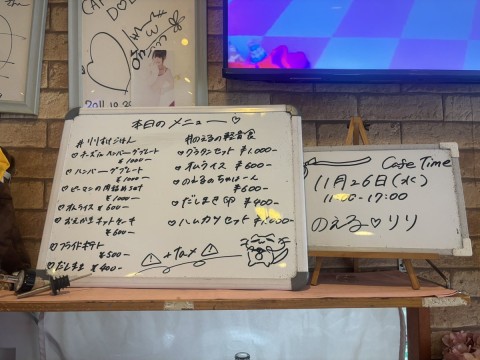 CA
DO
2011.10.2
本日のメニュー♡
#りりすけごはん
♡チーズinハンバーグプレート
¥1000-
♡ハンバーグプレート
¥1000-
♡ピーマンの肉詰めset
¥1000-
♡オムライス ¥600-
♡おえかきホットケーキ
¥600-
♡フライドポテト
¥500-
♡だしまき ¥400-
#のえるの軽食
♡グラタンセット ¥1,000-
♡オムライス ¥600-
♡のえるのちゃーはん
¥600-
♡だしまき卵 ¥400-
♡ハムカツセット ¥1,000-
⚠+Tax⚠
Cafe Time
11月26日(水)
11:00-17:00
のえる♡リリ